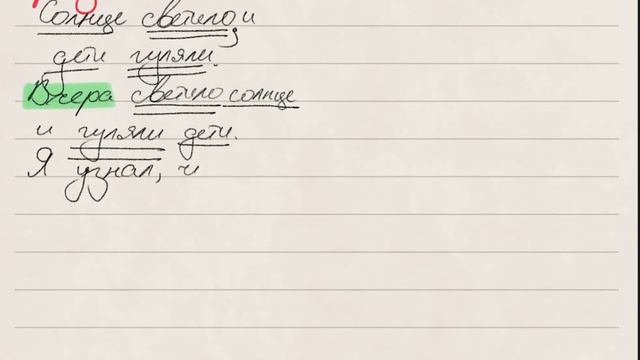 Солнце светило, и
дети гуляли.
Вчера светило солнце
и гуляли дети.
Я узнал, ч